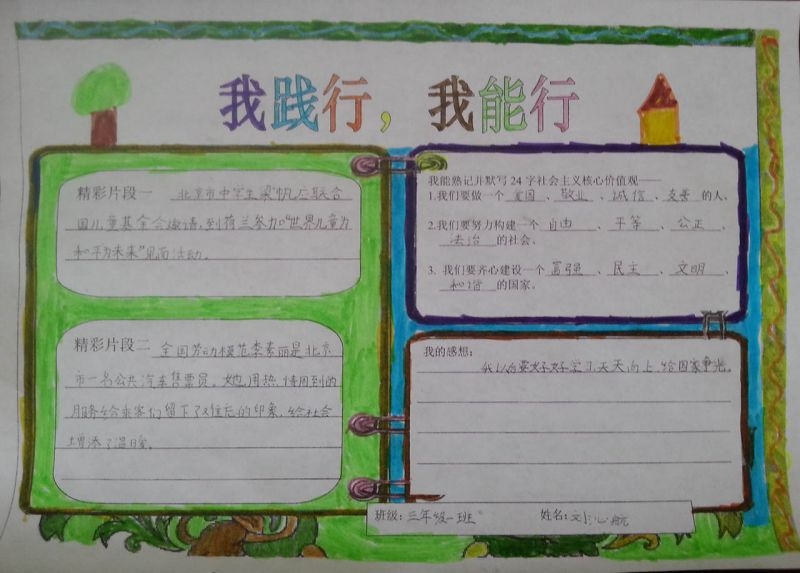 我践行，我能行
精彩片段一 北京市中学生梁帆应联合
国儿童基金会邀请，到荷兰参加“世界儿童为
和平为未来”见面活动。
精彩片段二 全国劳动模范李素丽是北京
市一名公共汽车售票员。她用热情周到的
服务给乘客们留下了难忘的印象，给社会
增添了温暖。
我能熟记并默写24字社会主义核心价值观——
1.我们要做一个 爱国 、 敬业 、 诚信 、 友善 的人、
2.我们要努力构建一个 自由 、 平等 、 公正 、
法治 的社会、
3. 我们要齐心建设一个 富强 、 民主 、 文明 、
和谐 的国家。
我的感想：
我以后要好好学习天天向上，给国家争光。
班级：三年级一班 姓名：刘心航